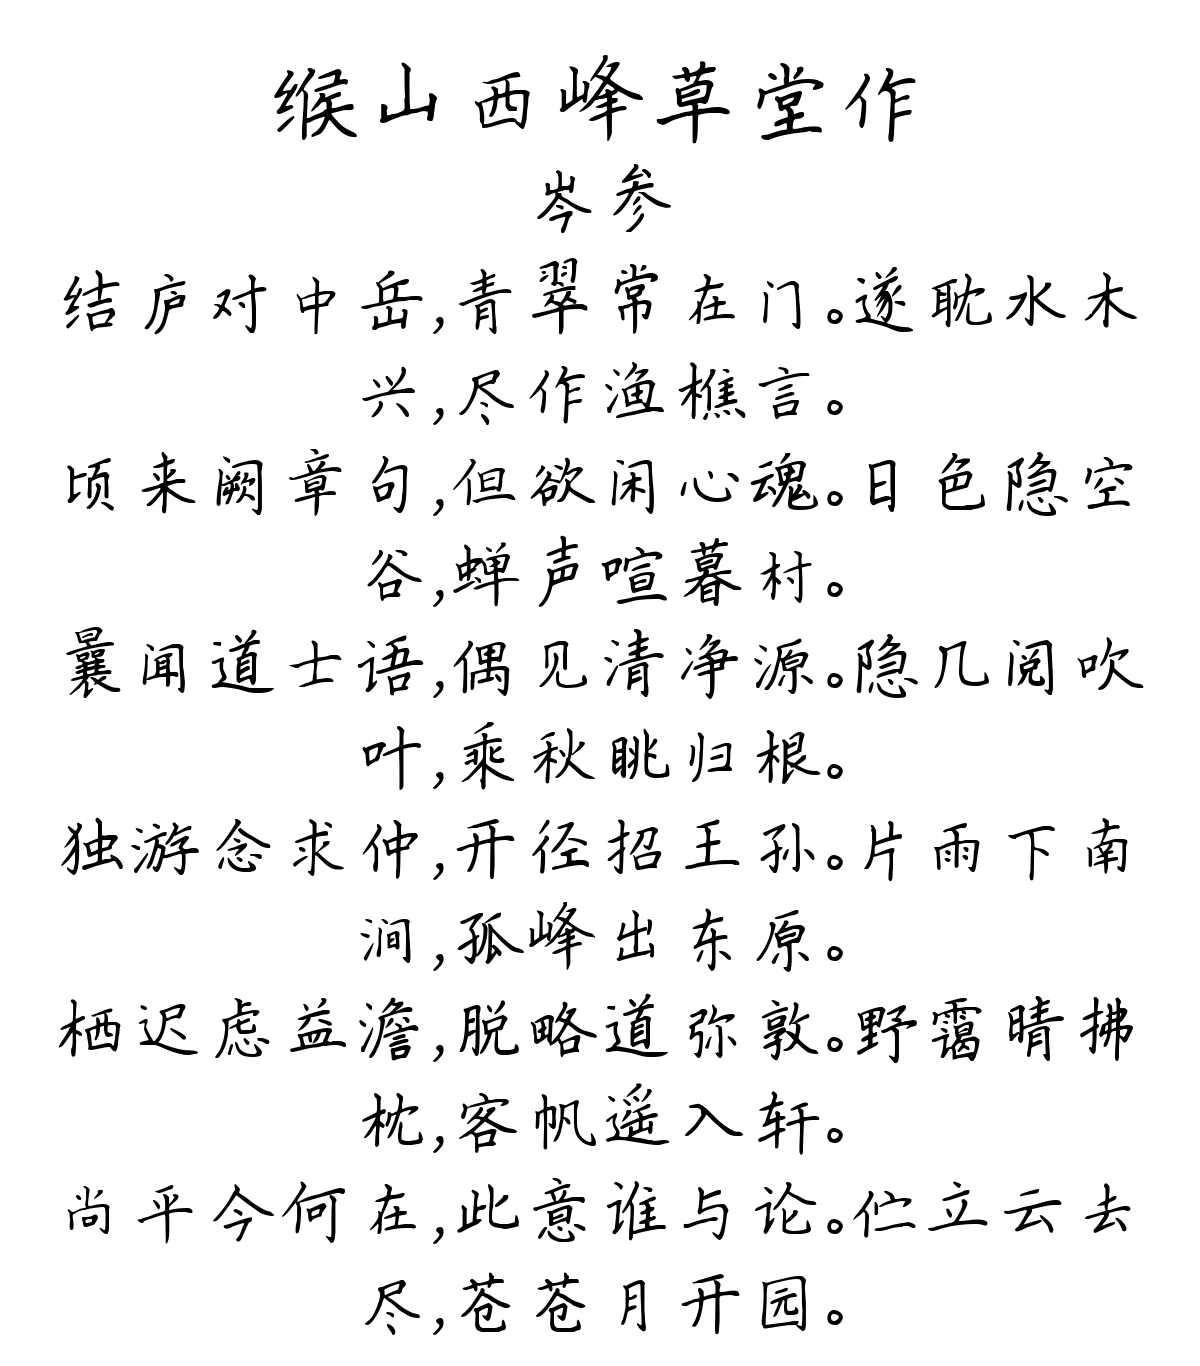 缑山西峰草堂作
岑参
结庐对中岳,青翠常在门。遂耽水木
兴,尽作渔樵言。
顷来阙章句,但欲闲心魂。日色隐空
谷,蝉声喧暮村。
曩闻道士语,偶见清净源。隐几阅吹
叶,乘秋眺归根。
独游念求仲,开径招王孙。片雨下南
涧,孤峰出东原。
栖迟虑益澹,脱略道弥敦。野霭晴拂
枕,客帆遥入轩。
尚平今何在,此意谁与论。伫立云去
尽,苍苍月开园。